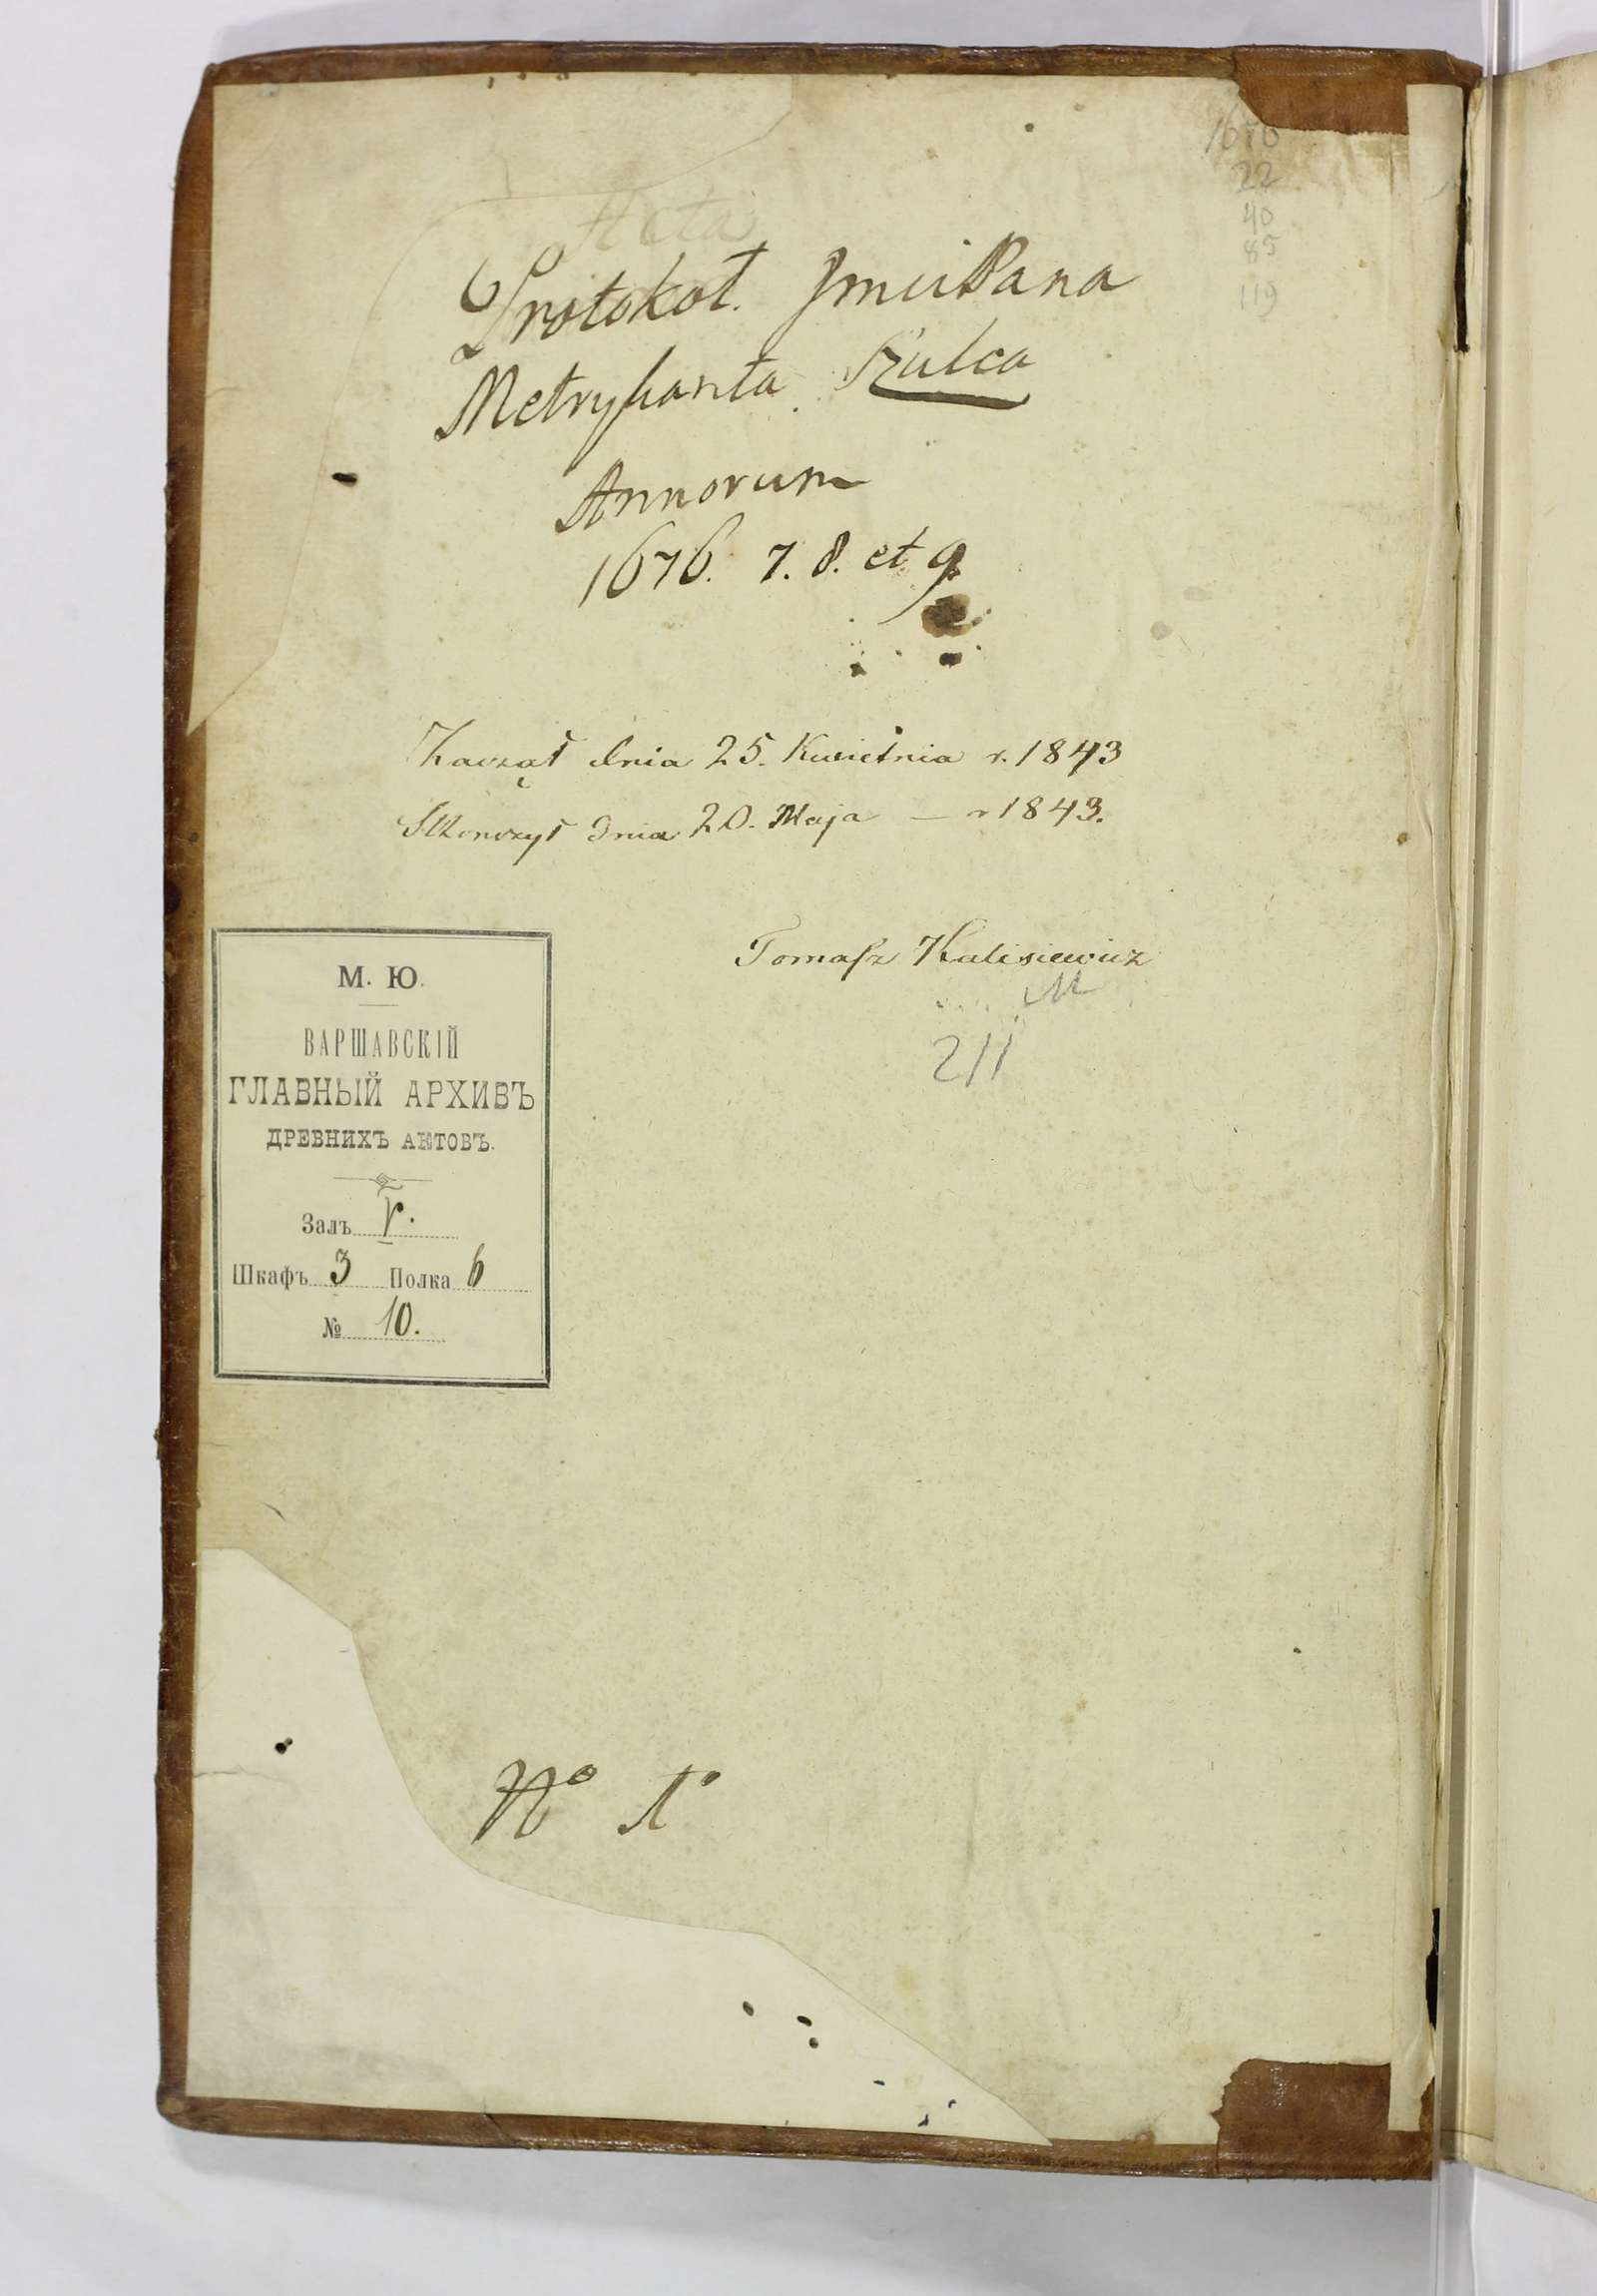 1676
22
40
85
119
Acta
Protokoł. JmciPana
Metrykanta Szulca
Annorum
1676. 7. 8. et 9
Zaczął dnia 25. Kwietnia r. 1843
Skonczył dnia 20. Maja — r 1843.
Tomasz Kulisiewicz
211
М. Ю.
ВАРШАВСКІЙ
ГЛАВНЫЙ АРХИВЪ
ДРЕВНИХЪ АКТОВЪ.
Залъ V.
Шкафъ 3 Полка 6
№ 10.
No 1o